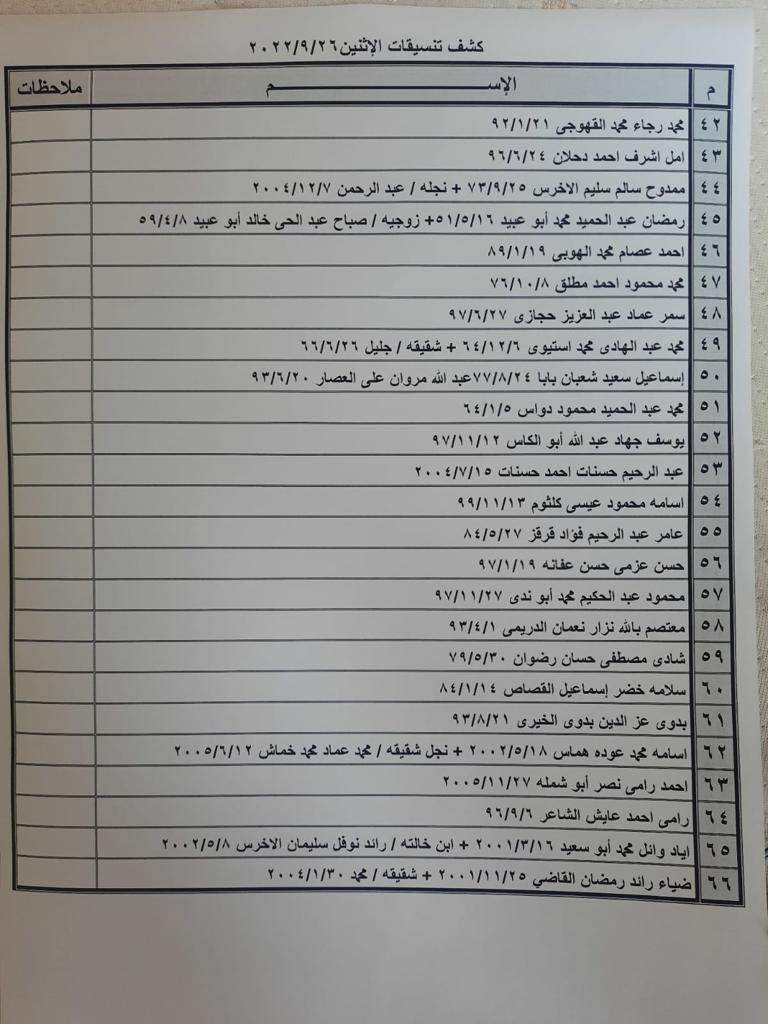 كشف تنسيقات الإثنين ٢٠٢٢/٩/٢٦
م الإســـم ملاحظات
٤٢ محمد رجاء محمد القهوجى ٩٢/١/٢١
٤٣ امل اشرف احمد دحلان ٩٦/٦/٢٤
٤٤ ممدوح سالم سليم الاخرس ٧٣/٩/٢٥ + نجله / عبد الرحمن ٢٠٠٤/١٢/٧
٤٥ رمضان عبد الحميد محمد أبو عبيد ٥١/٥/١٦+ زوجيه / صباح عبد الحى خالد أبو عبيد ٥٩/٤/٨
٤٦ احمد عصام محمد الهوبى ٨٩/١/١٩
٤٧ محمد محمود احمد مطلق ٧٦/١٠/٨
٤٨ سمر عماد عبد العزيز حجازى ٩٧/٦/٢٧
٤٩ محمد عبد الهادى محمد استيوى ٦٤/١٢/٦ + شقيقه / جليل ٦٦/٦/٢٦
٥٠ إسماعيل سعيد شعبان بابا ٧٧/٨/٢٤عبد الله مروان على العصار ٩٣/٦/٢٠
٥١ محمد عبد الحميد محمود دواس ٦٤/١/٥
٥٢ يوسف جهاد عبد الله أبو الكاس ٩٧/١١/١٢
٥٣ عبد الرحيم حسنات احمد حسنات ٢٠٠٤/٧/١٥
٥٤ اسامه محمود عيسى كلثوم ٩٩/١١/١٣
٥٥ عامر عبد الرحيم فؤاد قرقز ٨٤/٥/٢٧
٥٦ حسن عزمى حسن عفانه ٩٧/١/١٩
٥٧ محمود عبد الحكيم محمد أبو ندى ٩٧/١١/٢٧
٥٨ معتصم بالله نزار نعمان الدريمى ٩٣/٤/١
٥٩ شادى مصطفى حسان رضوان ٧٩/٥/٣٠
٦٠ سلامه خضر إسماعيل القصاص ٨٤/١/١٤
٦١ بدوى عز الدين بدوى الخيرى ٩٣/٨/٢١
٦٢ اسامه محمد عوده هماس ٢٠٠٢/٥/١٨ + نجل شقيقه / محمد عماد محمد خماش ٢٠٠٥/٦/١٢
٦٣ احمد رامى نصر أبو شمله ٢٠٠٥/١١/٢٧
٦٤ رامى احمد عايش الشاعر ٩٦/٩/٦
٦٥ اياد وائل محمد أبو سعيد ٢٠٠١/٣/١٦ + ابن خالته / رائد نوفل سليمان الاخرس ٢٠٠٢/٥/٨
٦٦ ضياء رائد رمضان القاضي ٢٠٠١/١١/٢٥ + شقيقه / محمد ٢٠٠٤/١/٣٠